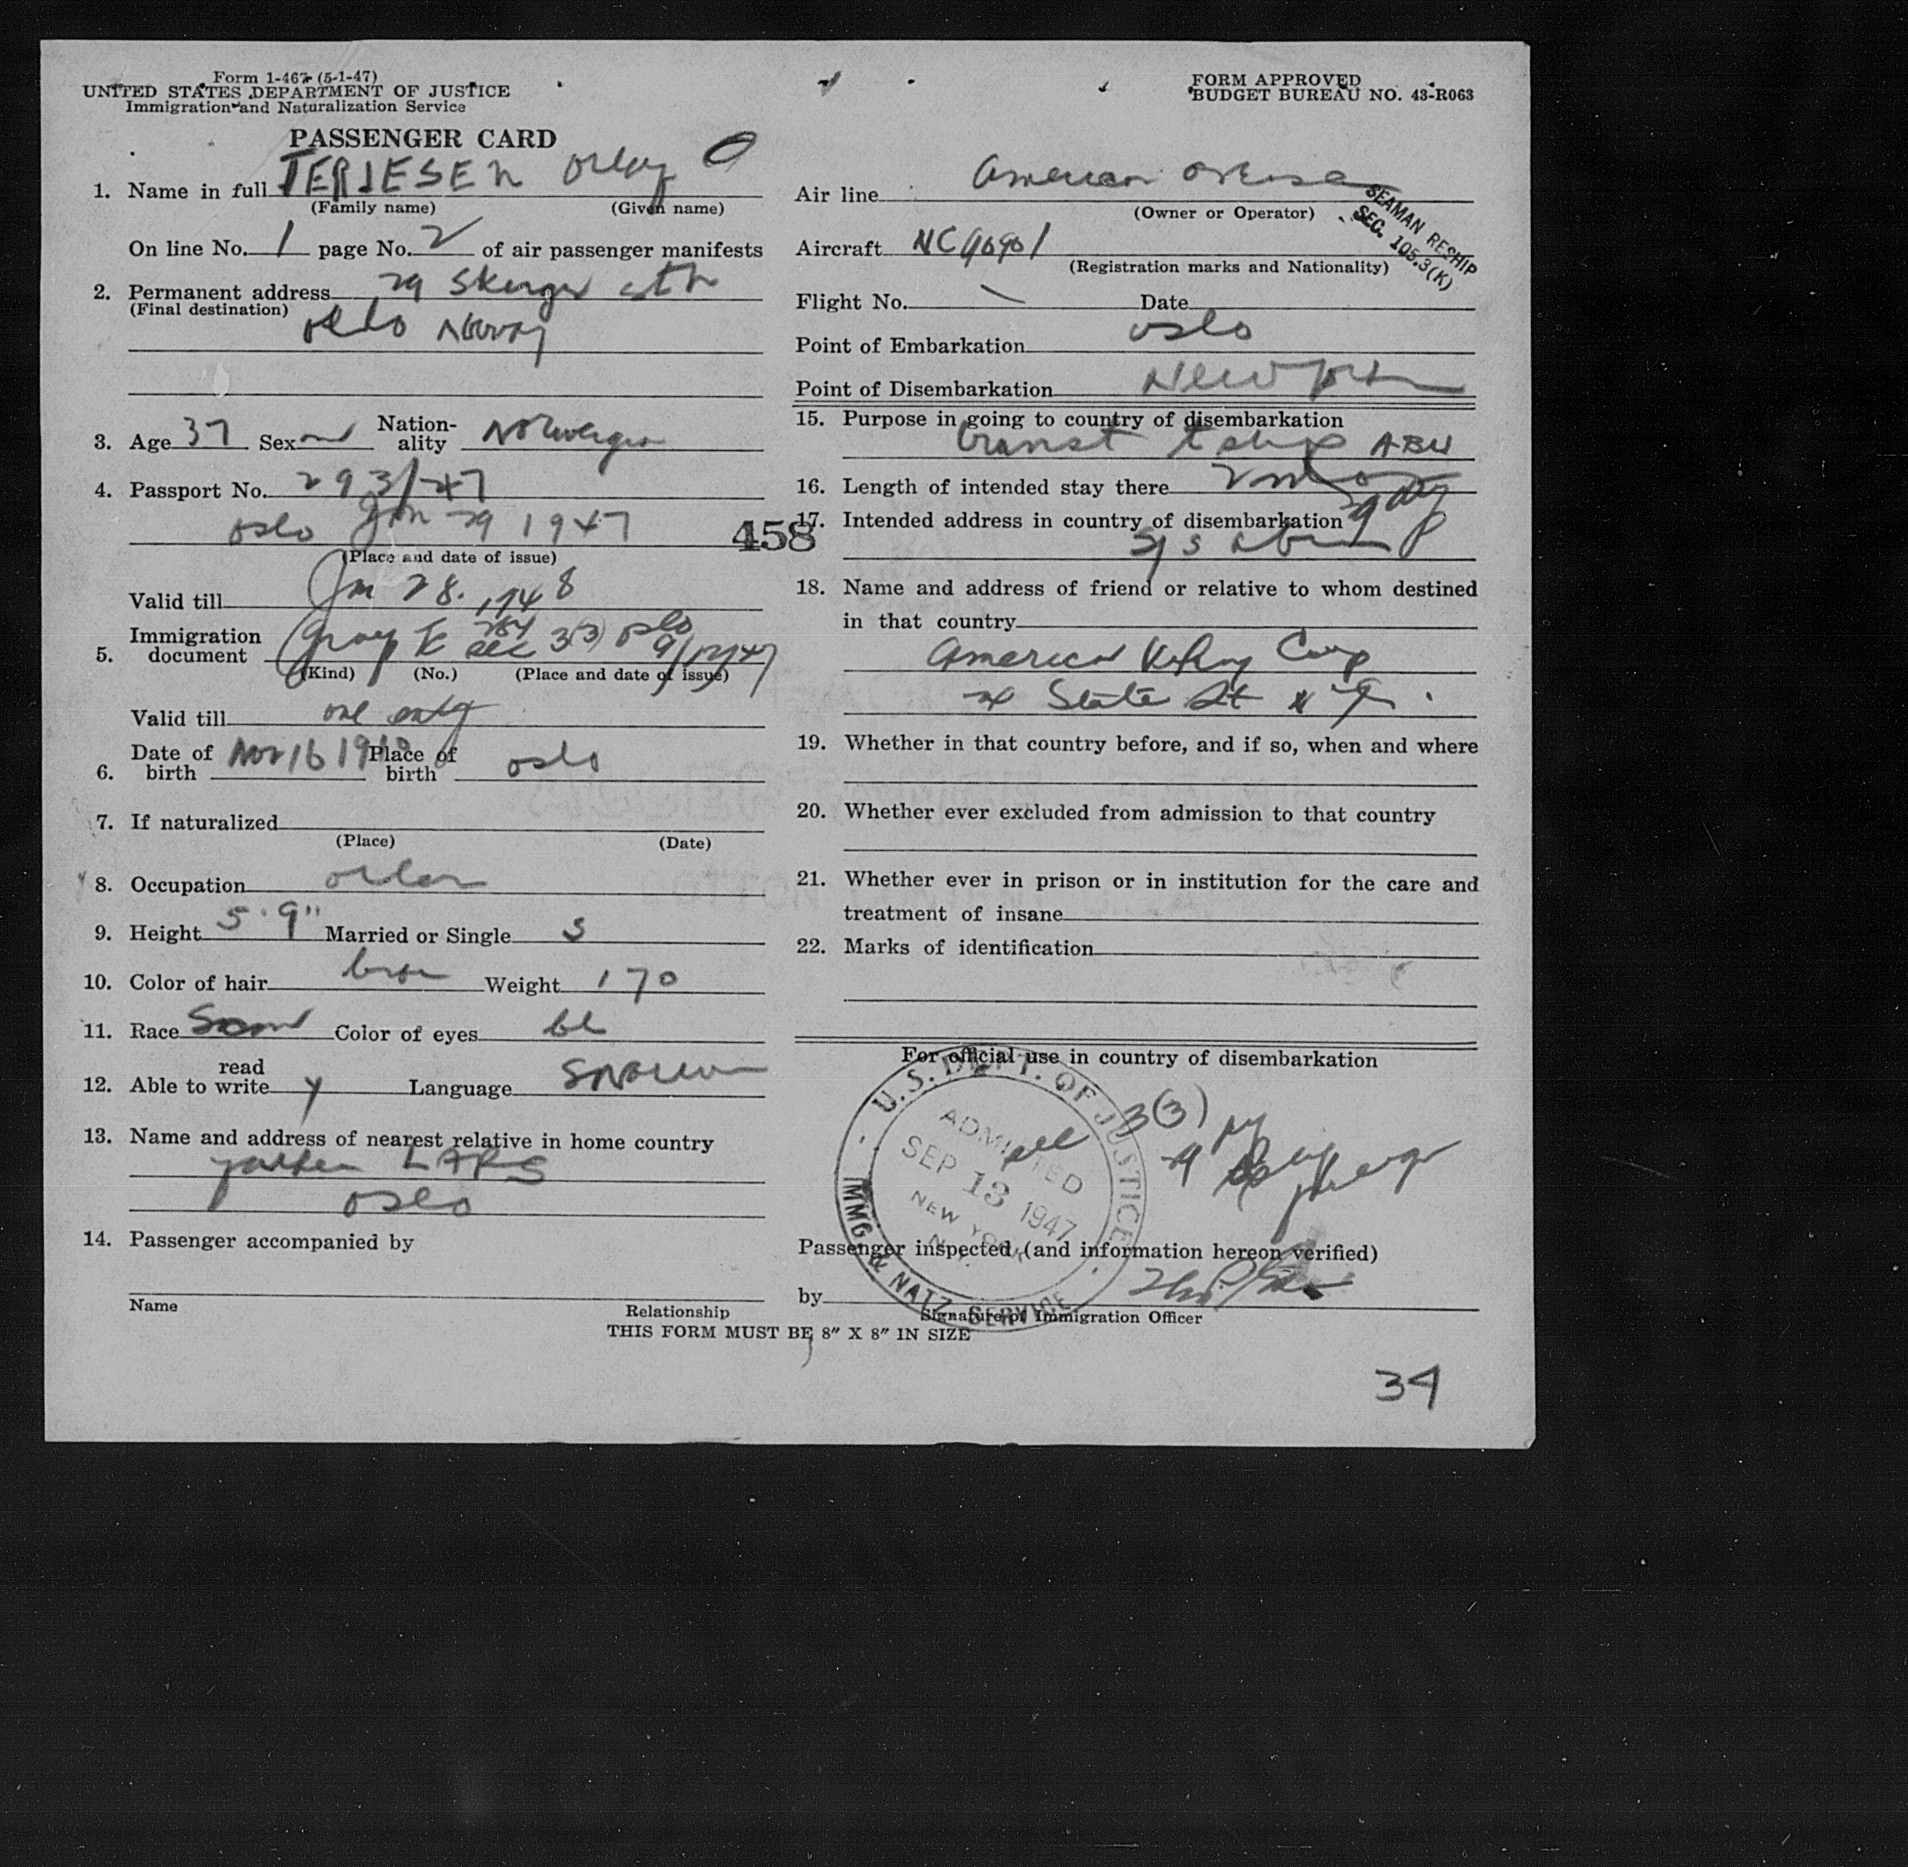 Form 1-467 (5-1-47)
UNITED STATES DEPARTMENT OF JUSTICE
Immigration and Naturalization Service
FORM APPROVED
BUDGET BUREAU NO. 43-R063
PASSENGER CARD
1. Name in full TERJESEN
(Family name) (Given name)
On line No. 1 page No. 2 of air passenger manifests
2. Permanent address 29
(Final destination)
Oslo Norway
3. Age 37 Sex Nationality Norwegian
4. Passport No. 293/47
Oslo Jan 29 1947
(Place and date of issue)
458
Valid till Jan 28. 1948
5. Immigration document 3(3) Oslo 9/12/47
(Kind) (No.) (Place and date of issue)
Valid till one entry
6. Date of birth Nov 16 19 Place of birth Oslo
7. If naturalized
(Place) (Date)
8. Occupation oiler
9. Height 5' 9" Married or Single S
10. Color of hair brown Weight 170
11. Race Scand Color of eyes bl
12. Able to read write y Language
13. Name and address of nearest relative in home country
father LARS
Oslo
14. Passenger accompanied by
Name Relationship
Air line American Overseas
(Owner or Operator)
SEAMAN RESHIP
SEC. 105.3(K)
Aircraft NC90901
(Registration marks and Nationality)
Flight No. Date
Point of Embarkation Oslo
Point of Disembarkation New York
15. Purpose in going to country of disembarkation
transit
16. Length of intended stay there
29 day
17. Intended address in country of disembarkation
18. Name and address of friend or relative to whom destined
in that country
American Corp
State St N Y
19. Whether in that country before, and if so, when and where
20. Whether ever excluded from admission to that country
21. Whether ever in prison or in institution for the care and
treatment of insane
22. Marks of identification
For official use in country of disembarkation
U.S. DEPT. OF JUSTICE
IMMG. & NATZ. SERVICE
ADMITTED
SEP 13 1947
NEW YORK
N.Y.
sec 3(3)
29
Passenger inspected (and information hereon verified)
by
Signature of Immigration Officer
THIS FORM MUST BE 8" X 8" IN SIZE
34